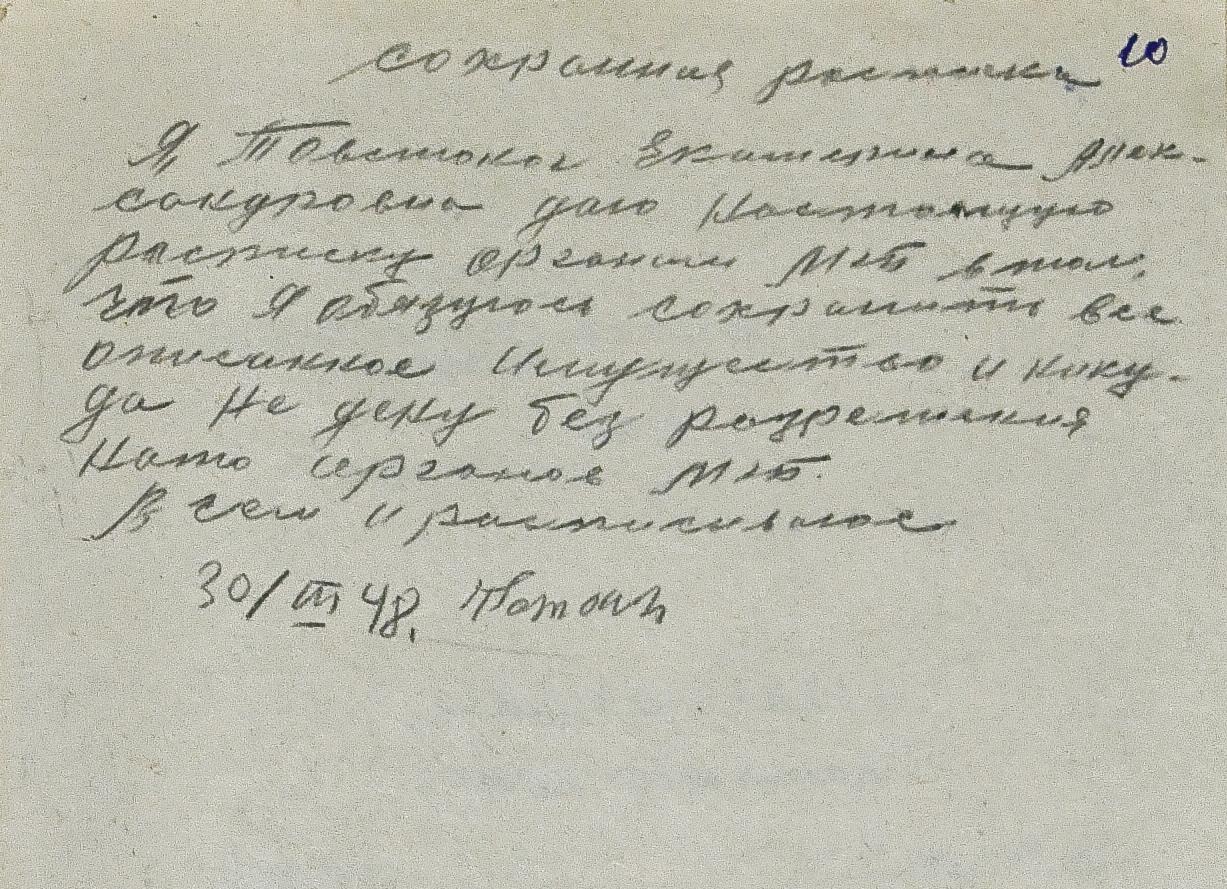 сохранная расписка 10
Я, Екатерина Алек-
сандровна даю настоящую
расписку органам МГБ в том,
что я обязуюсь сохранить все
описанное имущество и нику-
да не дену без разрешения
на то органов МГБ.
В сем и расписываюсь
30/III 48.